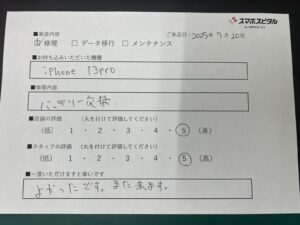 スマホスピタル
■来店内容 ご来店日:2025年7月20日
☑修理 □データ移行 □メンテナンス
■お持ち込みいただいた機種
iphone 13pro
■修理内容
バッテリー交換.
■店舗の評価 (丸を付けて評価してください)
(低) 1 ・ 2 ・ 3 ・ 4 ・ 5 (高)
■スタッフの評価 (丸を付けて評価してください)
(低) 1 ・ 2 ・ 3 ・ 4 ・ 5 (高)
■一言いただけますと幸いです
よかったです。また来ます。